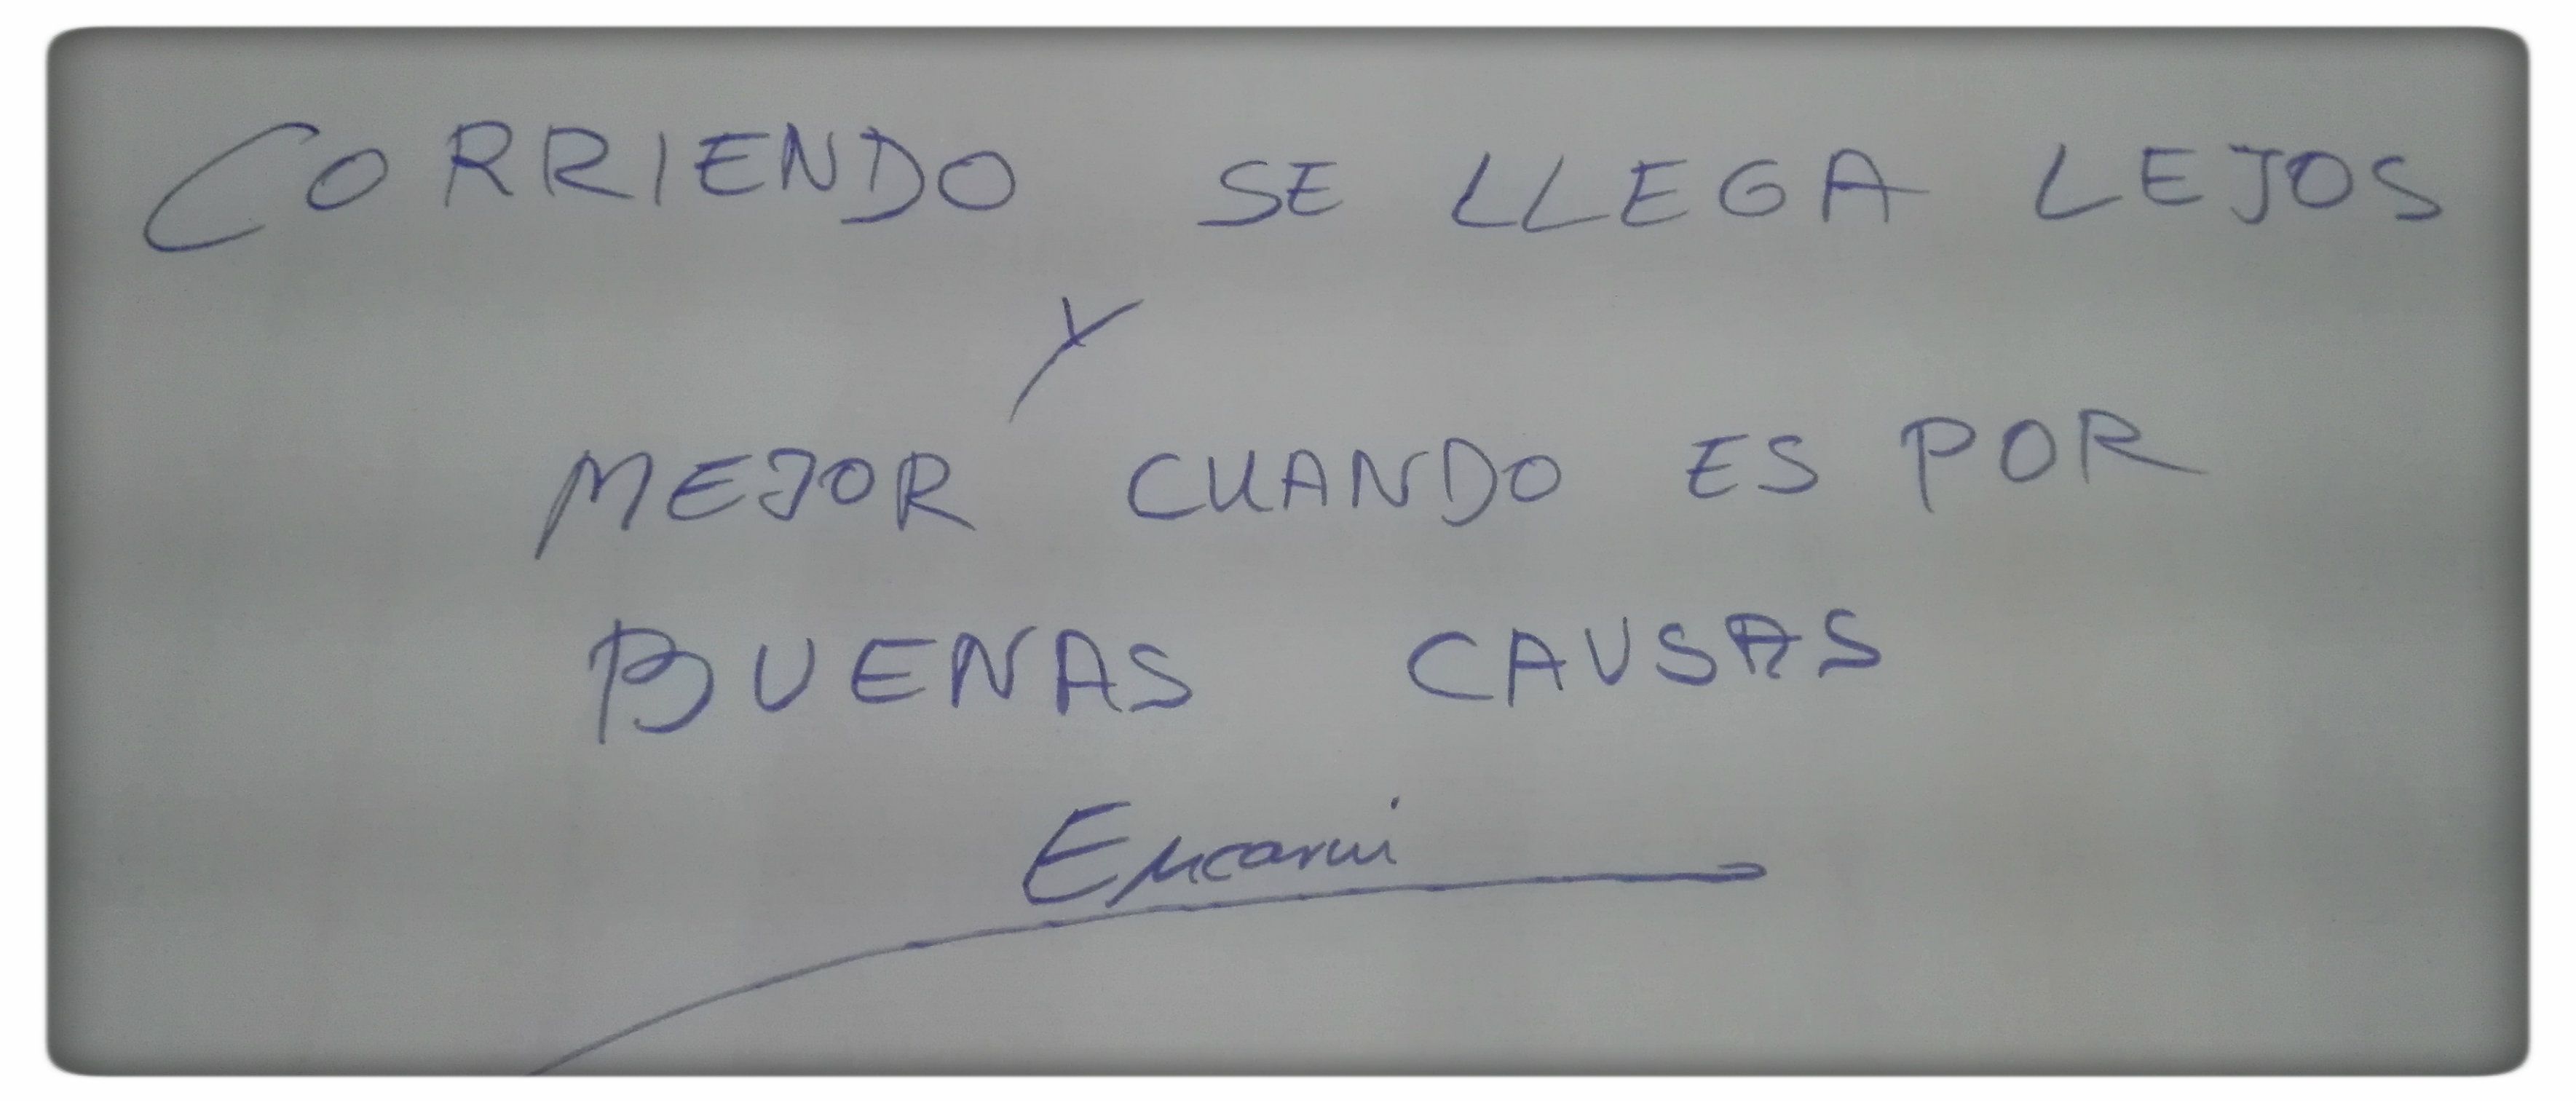 CORRIENDO SE LLEGA LEJOS
Y
MEJOR CUANDO ES POR
BUENAS CAUSAS
Encarni